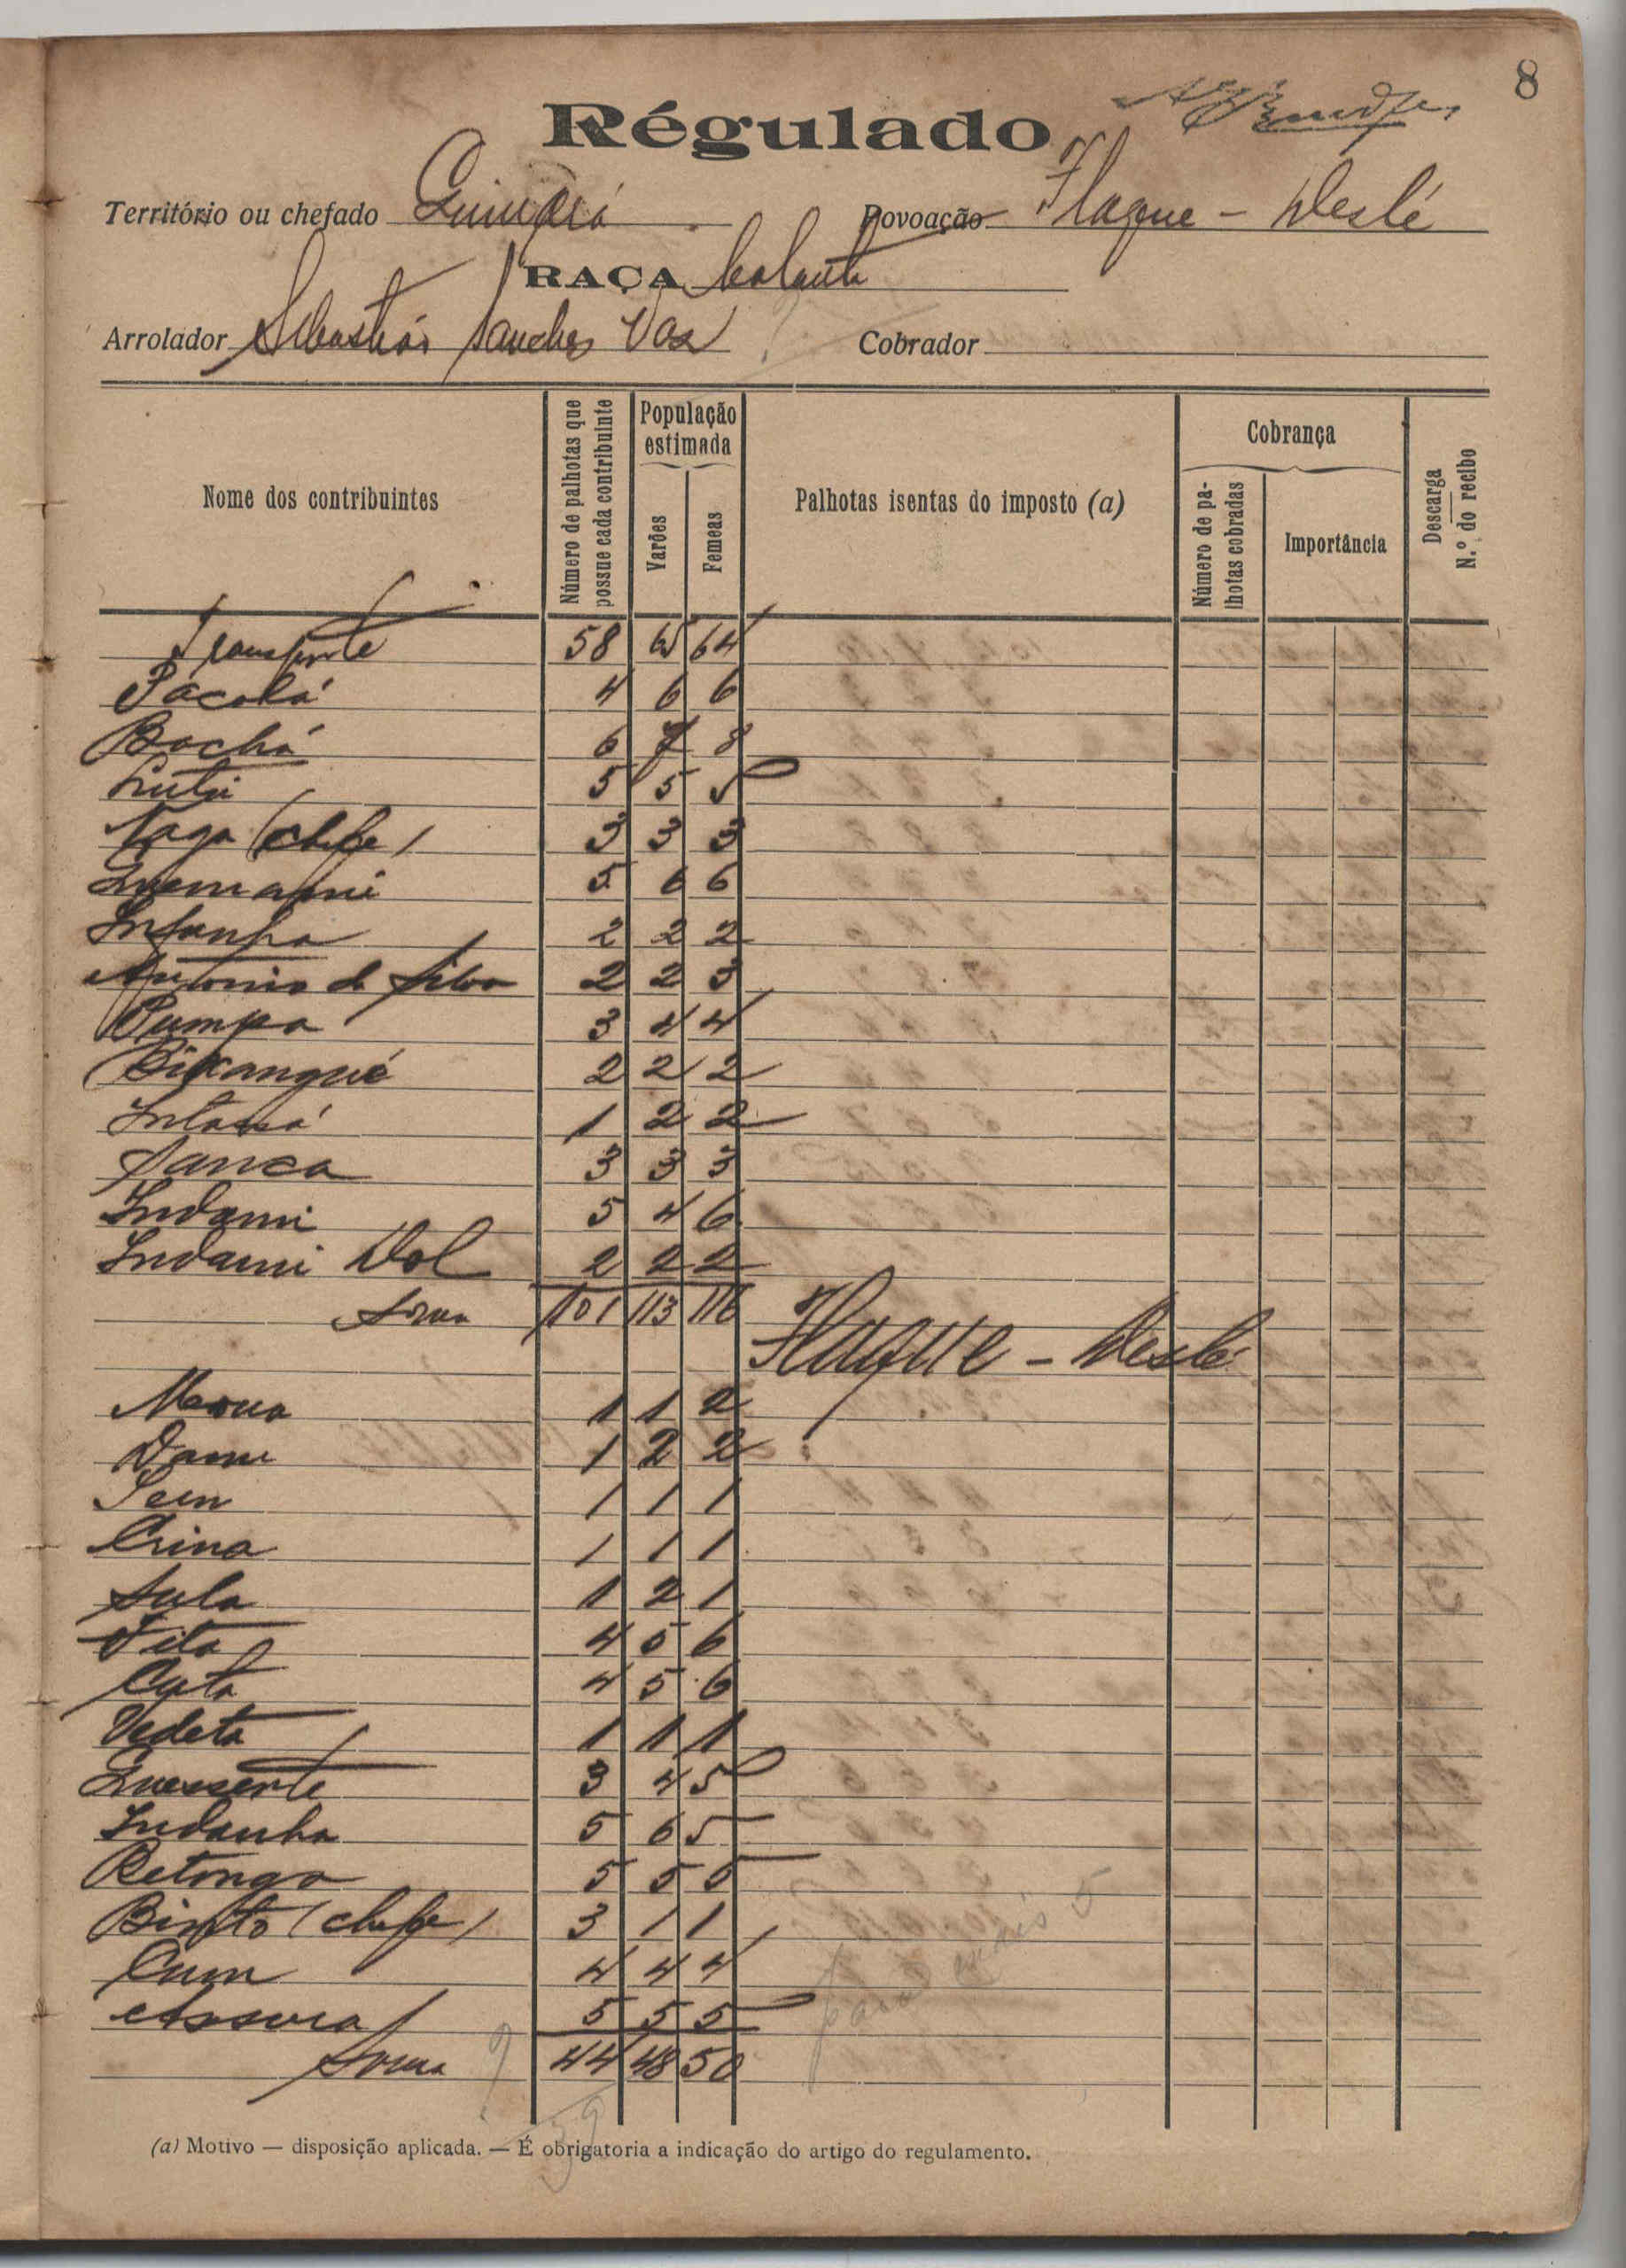 8
Régulado
Território ou chefado Quinará Povoação Flaque - Deslé
RAÇA balanta
Arrolador Sebastião Sanches Vaz Cobrador
Nome dos contribuintes
Número de palhotas que possue cada contribuinte
População estimada
Varões
Femeas
Palhotas isentas do imposto (a)
Cobrança
Número de palhotas cobradas
Importância
Descarga
N.º do recibo
Transporte 58 65 64
Pácolá 4 6 6
Bochá 6 7 8
5 5 5
Naga (chefe) 3 3 3
Quemami 5 6 6
Infanha 2 2 2
Antonio da Silva 2 2 3
Pumpa 3 4 4
Bixangué 2 2 2
1 2 2
Sanca 3 3 3
Indami 5 4 6
Indami Dol 2 2 2
Soma 101 113 116
Flaque - Deslé
1 1 2
Dame 1 2 2
1 1 1
Crina 1 1 1
Sula 1 2 1
Fita 4 5 6
4 5 6
Vedeta 1 1 1
Quessente 3 4 5
Indanha 5 6 5
Retonga 5 5 5
Binto (chefe) 3 1 1
Cum 4 4 4
5 5 5
Soma 44 48 50
para mais 5
39
(a) Motivo — disposição aplicada. — É obrigatoria a indicação do artigo do regulamento.